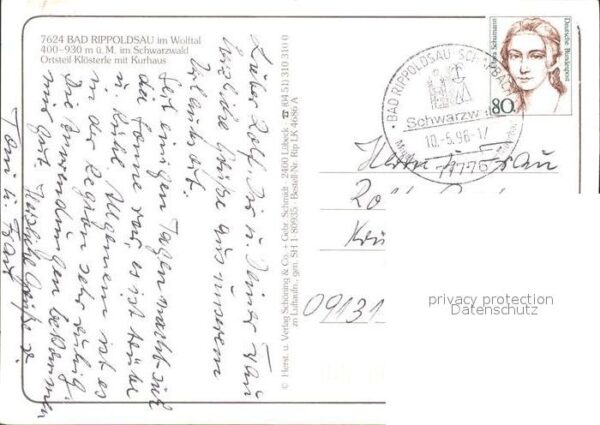 7624 BAD RIPPOLDSAU im Wolftal
400–930 m ü. M. im Schwarzwald
Ortsteil Klösterle mit Kurhaus
Lieber Rolf Dir u. Deiner Frau
herzliche Grüße aus unserem
Urlaubsort.
Seit einigen Tagen macht sich
die Sonne rar, es ist trübe
u. kühl. Allgemein ist es
in der Region sehr ruhig.
Die Anwendungen bekommen
mir gut. Herzliche Grüße v.
Toni u. Frau
© Herst. u. Verlag Schöning & Co. + Gebr. Schmidt · 2400 Lübeck · ☎ (04 51) 310 310 0
zn Luftaufn., gen. SH 1-80935 · Bestell-Nr. Rip LK 4686 A
BAD RIPPOLDSAU-SCHAPBACH
Schwarzw
10.-5.96-17
77776
Clara Schumann
Deutsche Bundespost
80
Herrn u. Frau
09131
privacy protection
Datenschutz